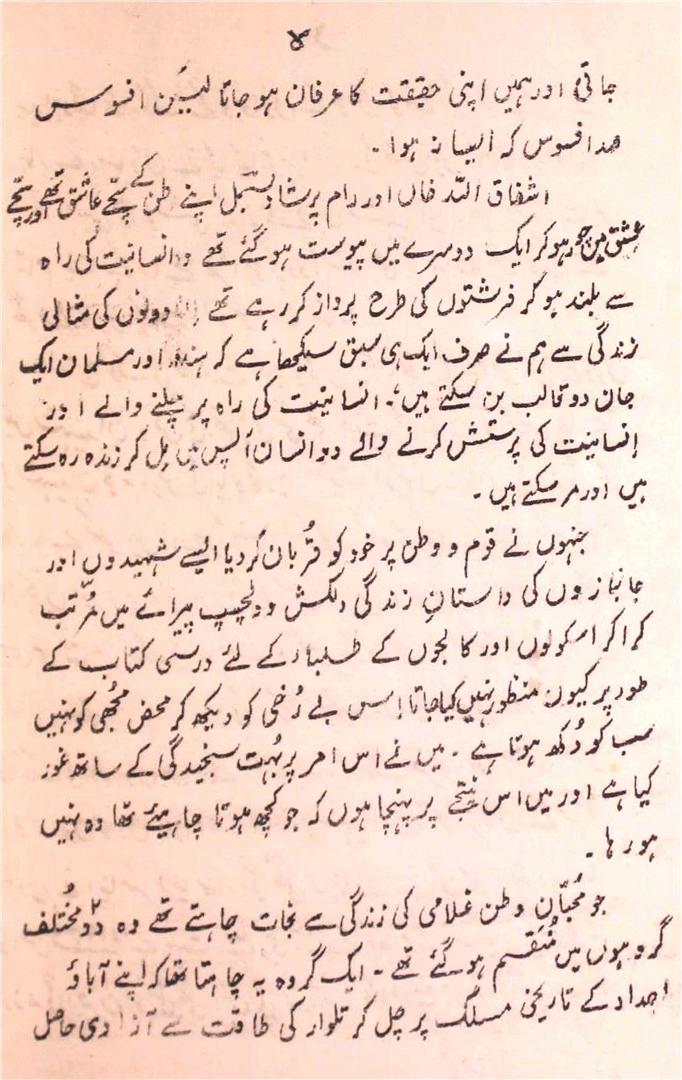 ۴
جاتی اور ہمیں اپنی حقیقت کا عرفان ہو جاتا لیکن افسوس
صد افسوس کہ ایسا نہ ہوا۔
اشفاق اللہ خاں اور رام پرشاد بسمل اپنے وطن کے سچے عاشق تھے اور سچے
عشق میں چور ہو کر ایک دوسرے میں پیوست ہو گئے تھے وہ انسانیت کی راہ
سے بلند ہو کر فرشتوں کی طرح پرواز کر رہے تھے ان دونوں کی مثالی
زندگی سے ہم نے صرف ایک ہی سبق سیکھا ہے کہ ہندو اور مسلمان ایک
جان دو قالب بن سکتے ہیں، انسانیت کی راہ پر چلنے والے اور
انسانیت کی پرستش کرنے والے دو انسان آپس میں مل کر زندہ رہ سکتے
ہیں اور مر سکتے ہیں۔
جنہوں نے قوم و وطن پر خود کو قُربان کر دیا ایسے شہیدوں اور
جانبازوں کی داستانِ زندگی دلکش و دلچسپ پیرائے میں مُرتّب
کرا کر اسکولوں اور کالجوں کے طلباء کے لئے درسی کتاب کے
طور پر کیوں منظور نہیں کیا جاتا اِس بے رُخی کو دیکھ کر محض مجھی کو نہیں
سب کو دُکھ ہوتا ہے۔ میں نے اس امر پر بہُت سنجیدگی کے ساتھ غور
کیا ہے اور میں اس نتیجے پر پہنچا ہوں کہ جو کچھ ہونا چاہیئے تھا وہ نہیں
ہو رہا۔
جو مُحبّانِ وطن غلامی کی زندگی سے نجات چاہتے تھے وہ دو ۲ مُختلف
گروہوں میں مُنقسم ہو گئے تھے۔ ایک گروہ یہ چاہتا تھا کہ اپنے آباؤ
اجداد کے تاریخی مسلک پر چل کر تلوار کی طاقت سے آزادی حاصل